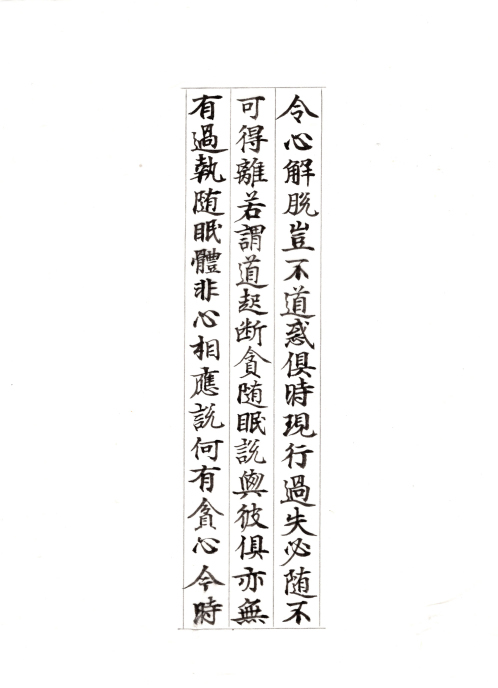 令心解脱豈不道惑俱時現行過失必随不
可得離若謂道起断貪随眠説與彼俱亦無
有過執随眠體非心相應説何有貪心令時